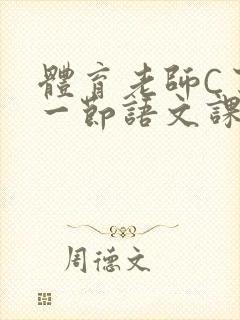 體育老師C
一節語文課
周德文